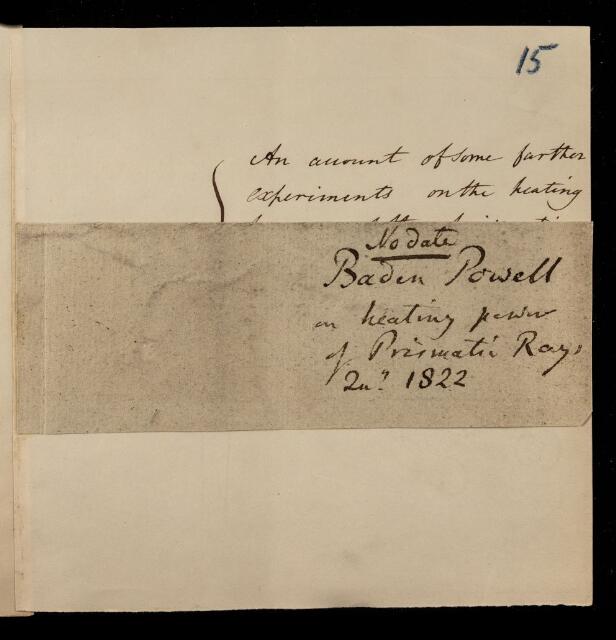 15
An account of some farther
experiments on the heating
No date
Baden Powell
on heating power
of Prismatic Rays
Qu? 1822